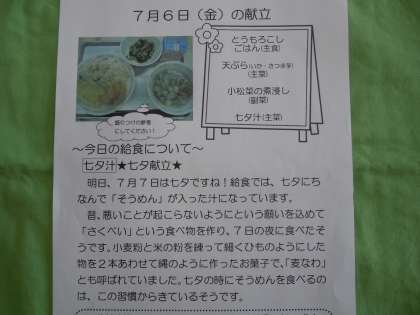 7月6日(金)の献立
とうもろこし
ごはん(主食)
天ぷら(いか・さつま芋)
(主菜)
小松菜の煮浸し
(副菜)
七夕汁(主菜)
にしてください!
～今日の給食について～
七夕汁★七夕献立★
明日、7月7日は七夕ですね!給食では、七夕にち
なんで「そうめん」が入った汁になっています。
昔、悪いことが起こらないようにという願いを込めて
「さくべい」という食べ物を作り、7日の夜に食べたそ
うです。小麦粉と米の粉を練って細くひものようにした
物を2本あわせて縄のように作ったお菓子で、「麦なわ」
とも呼ばれていました。七夕の時にそうめんを食べるの
は、この習慣からきているそうです。